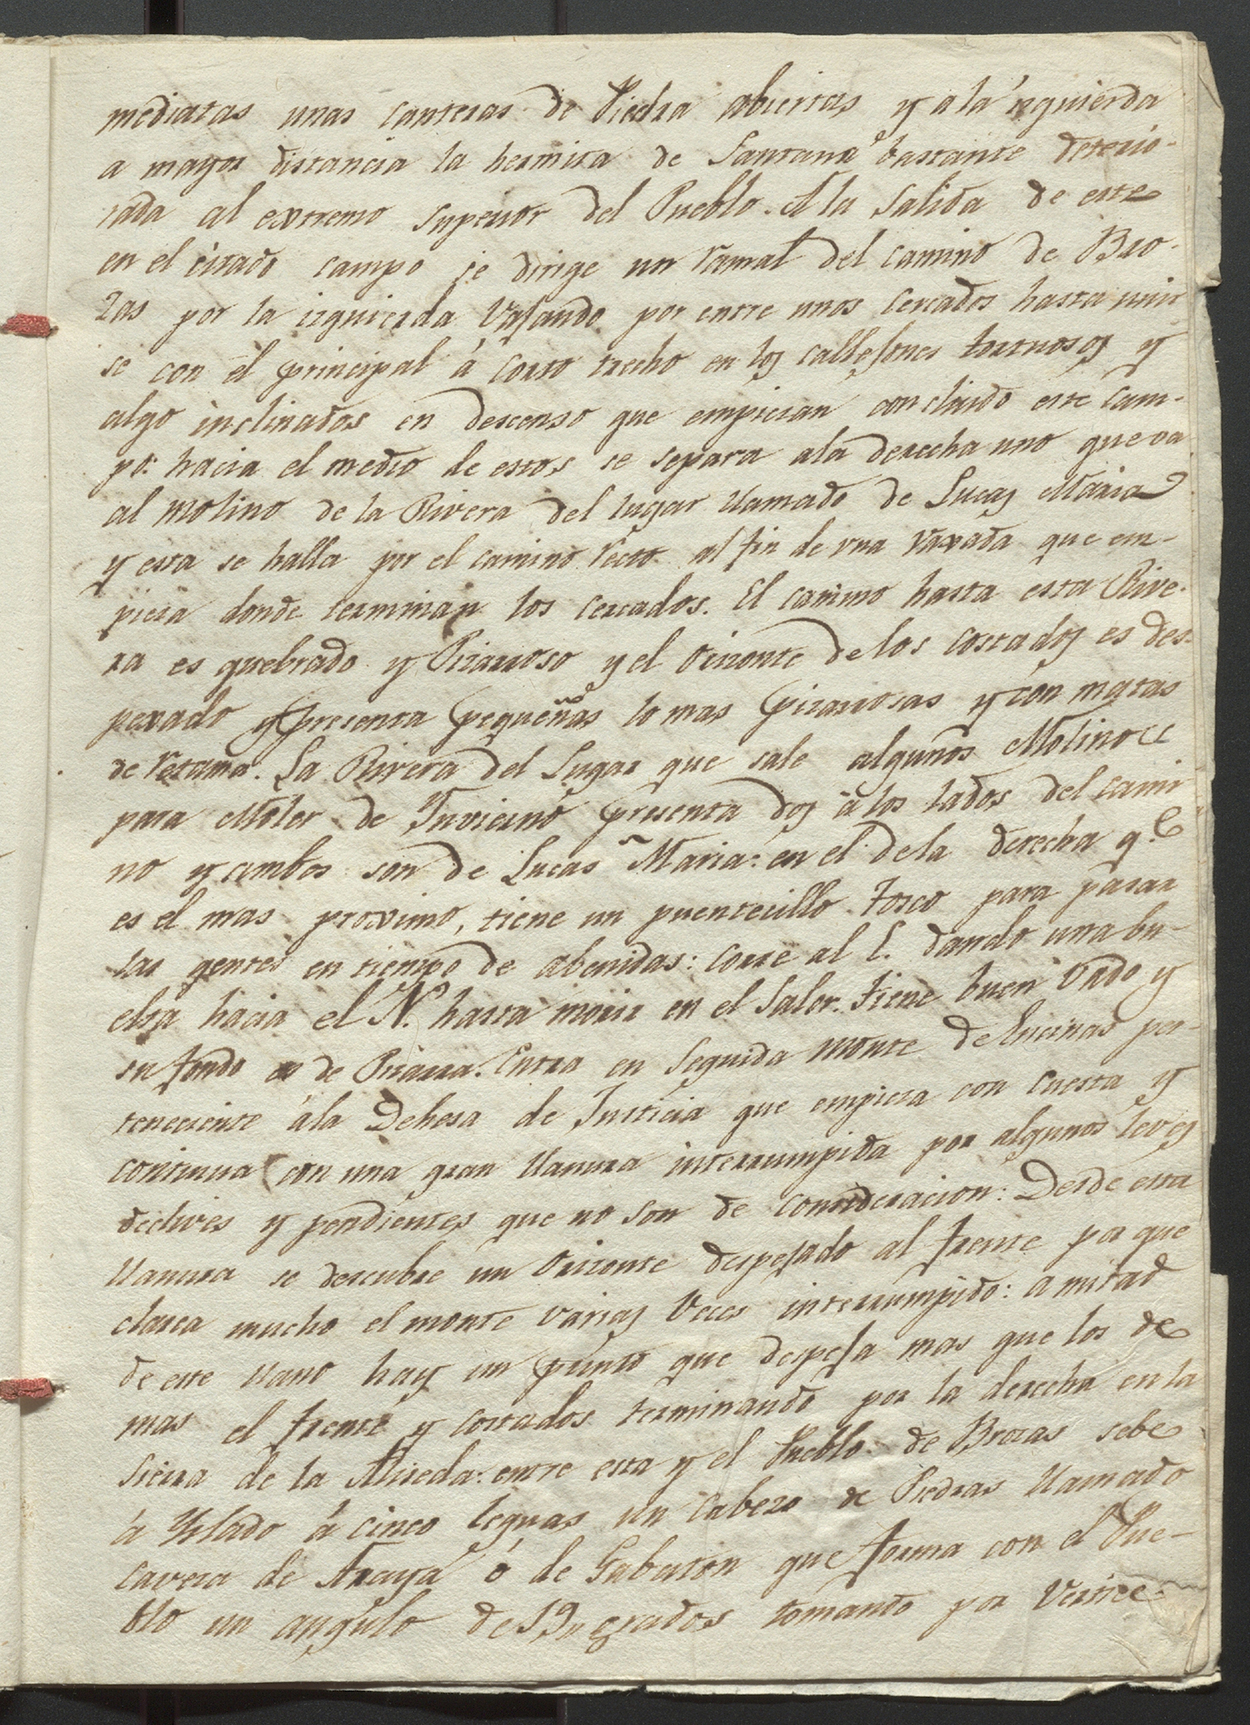 mediatas unas canteras de Piedra abiertas y a la izquierda
a mayor distancia la hermita de Santana bastante deterio-
rada al extremo superior del Pueblo. A la salida de este
en el citado campo se dirige un ramal del camino de Bro-
zas por la izquierda vajando por entre unos cercados hasta unir
se con el principal á corto trecho en los callejones tortuosos y
algo inclinados en descenso que empiezan concluido este cam-
po: hacia el medio de estos se separa ala derecha uno que va
al molino de la Rivera del lugar llamado de Lucas Maria
y esta se halla por el camino recto al fin de vna vaxada que em-
pieza donde terminan los cercados. El camino hasta esta Rive-
ra es quebrado y Pizarroso y el Orizonte de los costados es des-
pexado y presenta pequeñas lomas pizarrosas y con matas
de retama. La Rivera del Lugar que sale algunos Molinos
para Moler de Invierno presenta dos á los lados del cami
no y ambos son de Lucas Maria: en el dela derecha q.e
es el mas proximo, tiene un puentecillo tosco para pasar
las gentes en tiempo de abenidas: corre al E. dando una bu-
elta hacia el N.º hasta morir en el Salor. tiene buen vado y
su fondo es de Pizarra. Entra en seguida monte de Encinas per-
teneciente ála Dehesa de Justicia que empieza con cuesta y
continua con una gran llanura interrumpida por algunos leves
declives y pendientes que no son de consideracion: Desde esta
llanura se descubre un Orizonte despejado al frente por que
clarea mucho el monte varias veces interrumpido: a mitad
de este llano hay un punto que despeja mas que los de
mas el frente y costados terminando por la derecha en la
Sierra de la Aliseda: entre esta y el Pueblo de Brozas sebe
á lado á cinco leguas un Cabezo de Piedras llamado
cavera de Araya ó de Gabaton que forma con el Pue-
blo un angulo de 19,, grados tomando por vertice